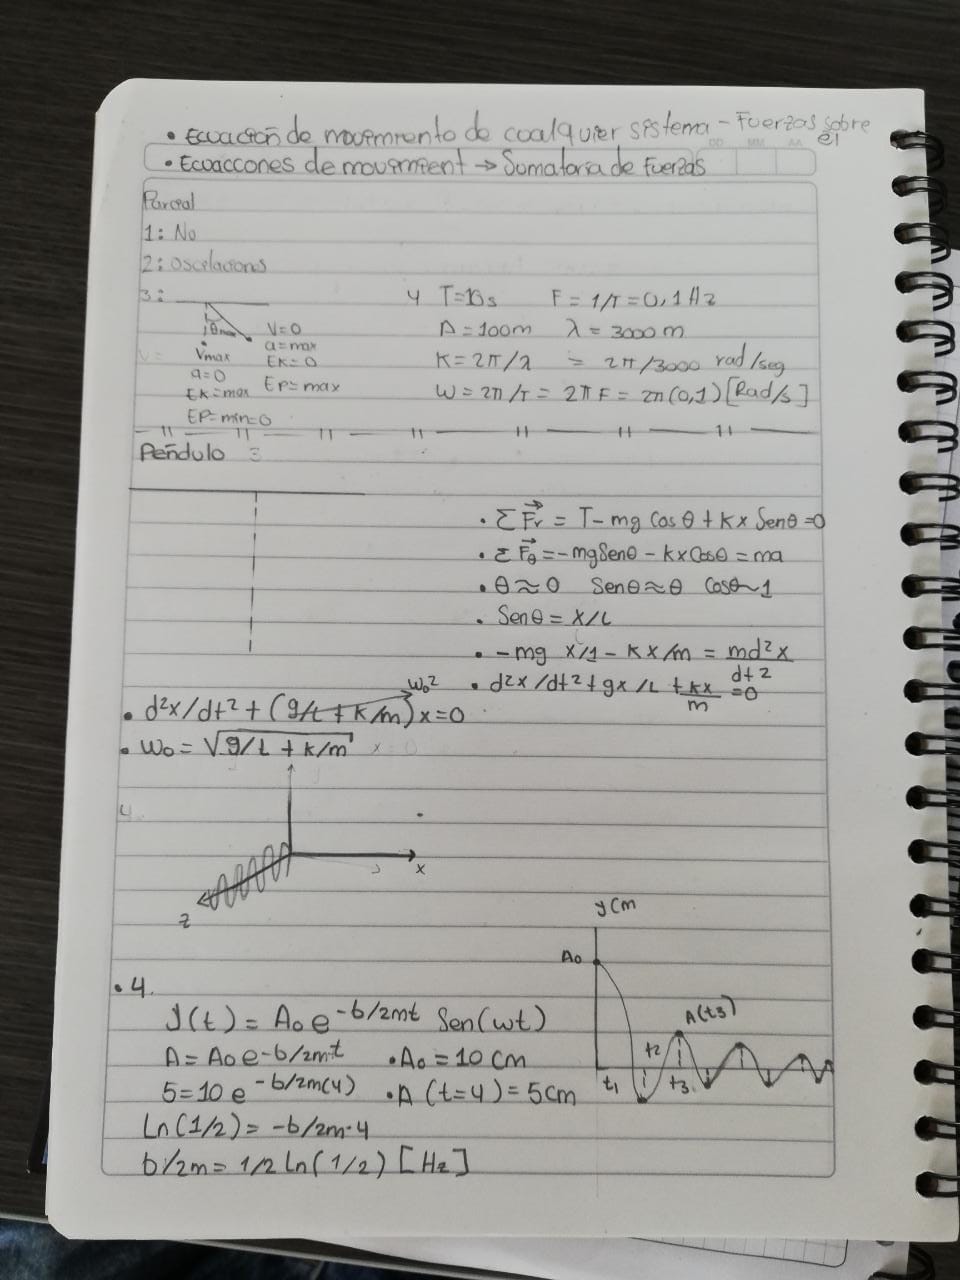 • Ecuación de movimiento de coalquier sistema - Fuerzas sobre él
• Ecuaccones de movimient → Sumatoria de Fuerzas
DD MM AA
Parcial
1: No
2: oscelacions
3:
θmax
V=0
a=max
EK=0
EP=max
Vmax
a=0
EK=max
EP=min=0
4 T=10s F = 1/T = 0,1 Hz
A = 100m λ = 3000 m
K = 2π/λ = 2π/3000 rad/seg
W = 2π/T = 2πF = 2π(0,1) [Rad/s]
Peñdulo 3
• Σ F⃗r = T - mg Cos θ + Kx Senθ = 0
• Σ F⃗θ = -mgSenθ - kxCosθ = ma
• θ≈0 Senθ≈θ Cosθ~1
• Senθ = x/L
• -mg x/1 - Kx/m = md²x/dt²
• d²x/dt² + gx/L + kx/m = 0
Wo²
• d²x/dt² + (g/L + k/m)x = 0
• Wo = √g/L + k/m x = 0
4.
x
z
• 4.
y(t) = Ao e^-b/2mt Sen(wt)
A = Ao e^-b/2mt • Ao = 10 cm
5 = 10 e^-b/2m(4) • A (t=4) = 5cm
Ln(1/2) = -b/2m·4
b/2m = 1/2 Ln(1/2) [Hz]
y cm
Ao
A(t3)
t1
t2
t3